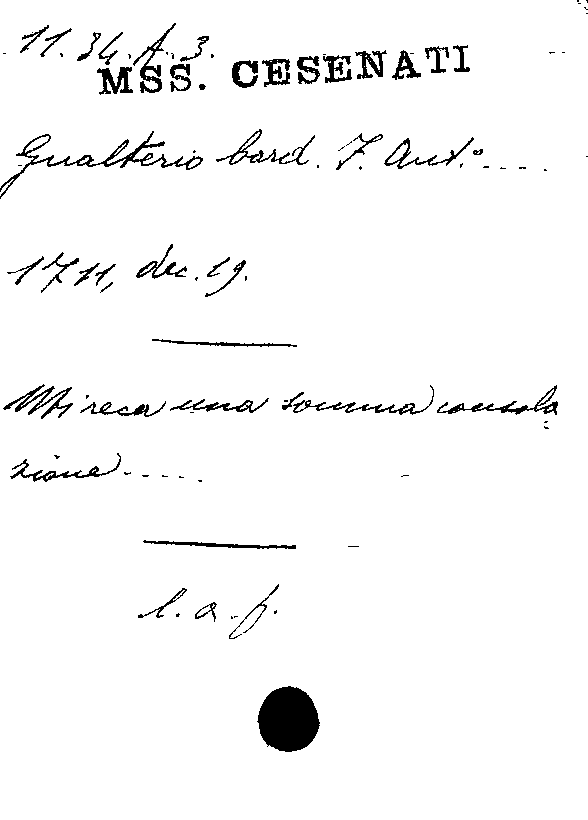 11.34.A.3.
MSS. CESENATI
Gualterio Card. F. Ant.º....
1711, dec. 19.
Mi reca una somma consola
zione.....
l. a. f.